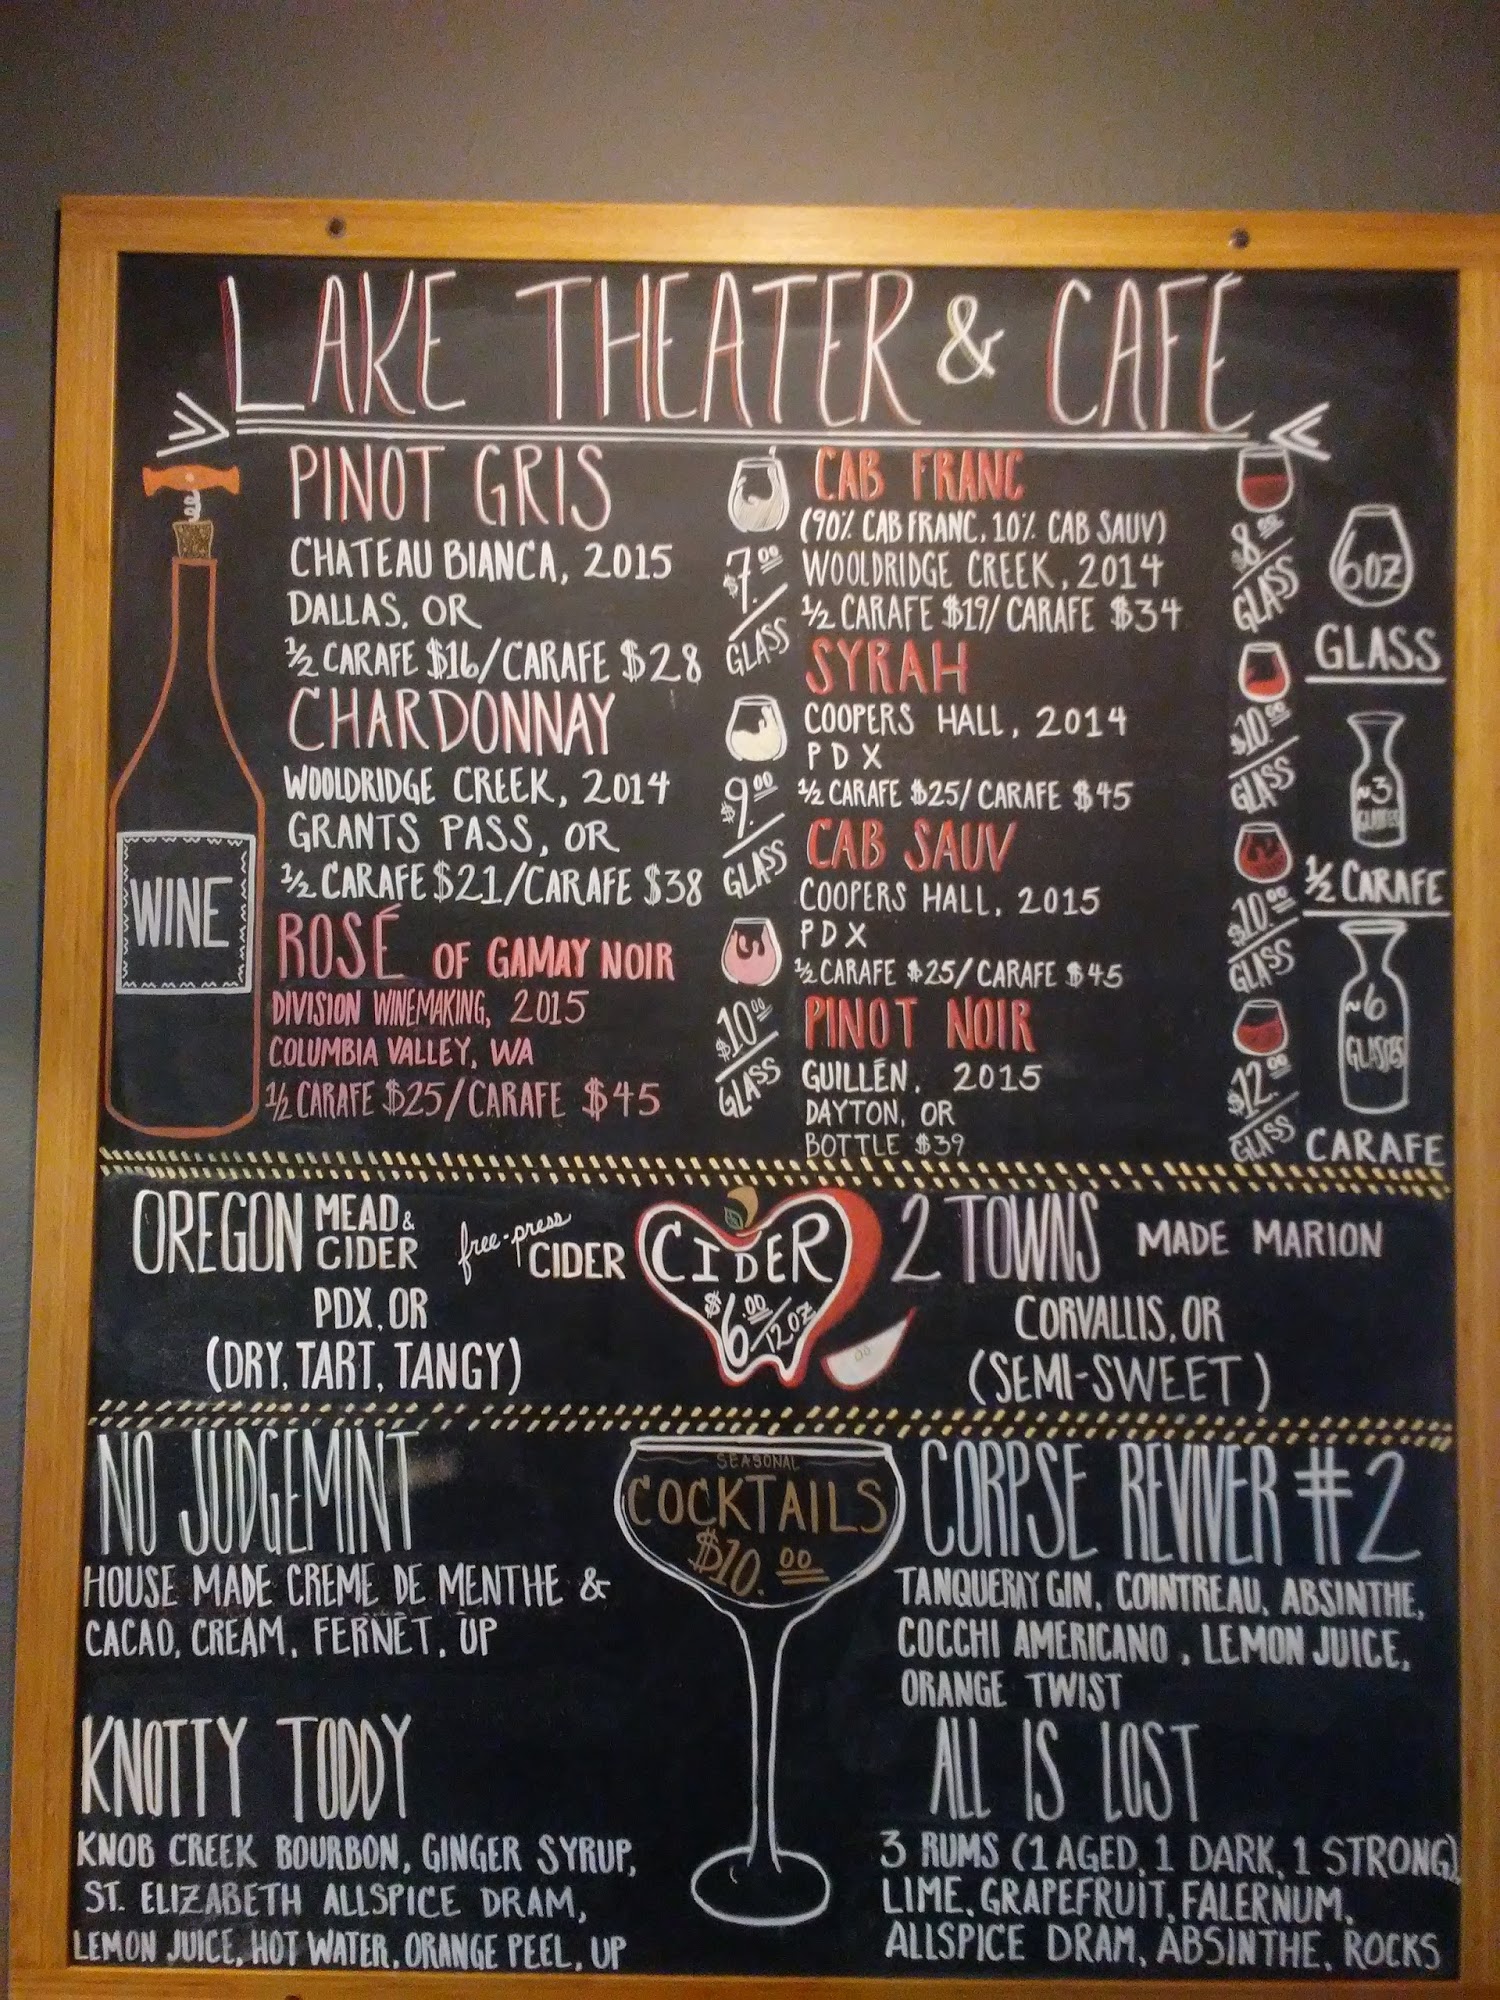 LAKE THEATER & CAFÉ
PINOT GRIS
CHATEAU BIANCA, 2015
DALLAS, OR
½ CARAFE $16/CARAFE $28
$7.00/GLASS
CHARDONNAY
WOOLDRIDGE CREEK, 2014
GRANTS PASS, OR
½ CARAFE $21/CARAFE $38
$9.00/GLASS
ROSÉ OF GAMAY NOIR
DIVISION WINEMAKING, 2015
COLUMBIA VALLEY, WA
½ CARAFE $25/CARAFE $45
$10.00/GLASS
WINE
CAB FRANC
(90% CAB FRANC, 10% CAB SAUV)
WOOLDRIDGE CREEK, 2014
½ CARAFE $19/CARAFE $34
$8.00/GLASS
SYRAH
COOPERS HALL, 2014
PDX
½ CARAFE $25/CARAFE $45
$10.00/GLASS
CAB SAUV
COOPERS HALL, 2015
PDX
½ CARAFE $25/CARAFE $45
$10.00/GLASS
PINOT NOIR
GUILLÉN, 2015
DAYTON, OR
BOTTLE $39
$12.00/GLASS
6OZ
GLASS
~3
GLASSES
½ CARAFE
~6
GLASSES
CARAFE
OREGON MEAD & CIDER free-press CIDER
PDX, OR
(DRY, TART, TANGY)
CIDER
$6.00/12OZ
2 TOWNS MADE MARION
CORVALLIS, OR
(SEMI-SWEET)
NO JUDGEMINT
HOUSE MADE CREME DE MENTHE &
CACAO, CREAM, FERNET, UP
KNOTTY TODDY
KNOB CREEK BOURBON, GINGER SYRUP,
ST. ELIZABETH ALLSPICE DRAM,
LEMON JUICE, HOT WATER, ORANGE PEEL, UP
SEASONAL
COCKTAILS
$10.00
CORPSE REVIVER #2
TANQUERAY GIN, COINTREAU, ABSINTHE,
COCCHI AMERICANO, LEMON JUICE,
ORANGE TWIST
ALL IS LOST
3 RUMS (1 AGED, 1 DARK, 1 STRONG),
LIME, GRAPEFRUIT, FALERNUM,
ALLSPICE DRAM, ABSINTHE, ROCKS